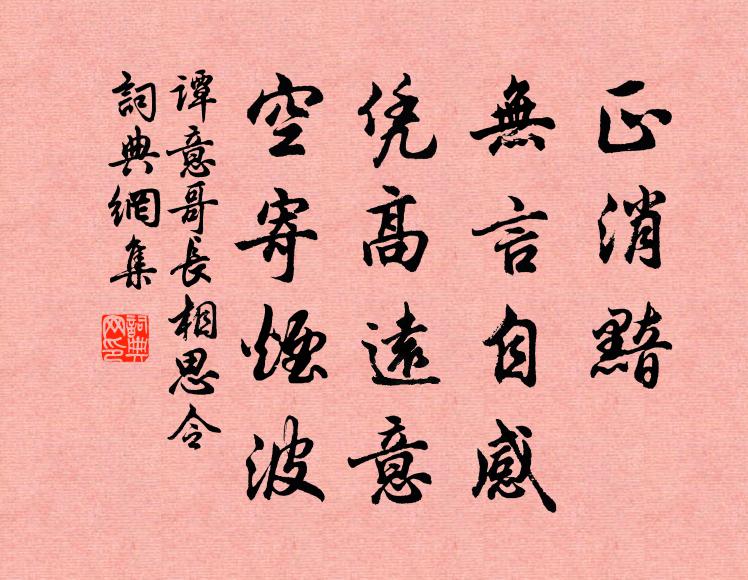 正消黯
無言自感
凭高遠意
空寄煙波
譚意哥長相思令
詞典網集
詞典
网印